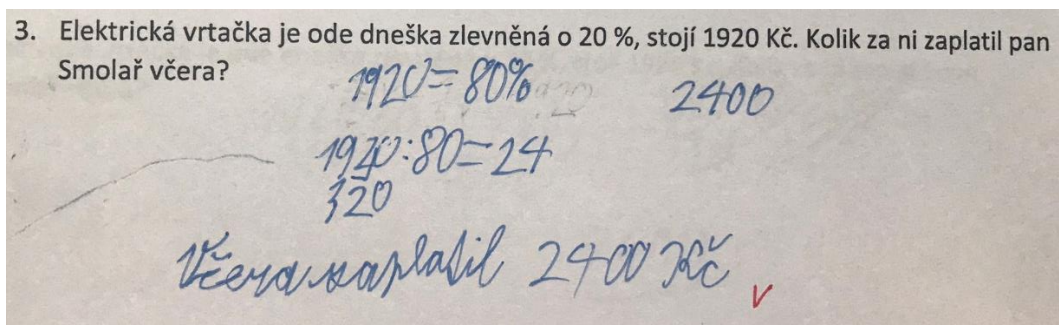 3. Elektrická vrtačka je ode dneška zlevněná o 20 %, stojí 1920 Kč. Kolik za ni zaplatil pan
Smolař včera?
1920=80% 2400
1920:80=24
320
Včera zaplatil 2400 Kč